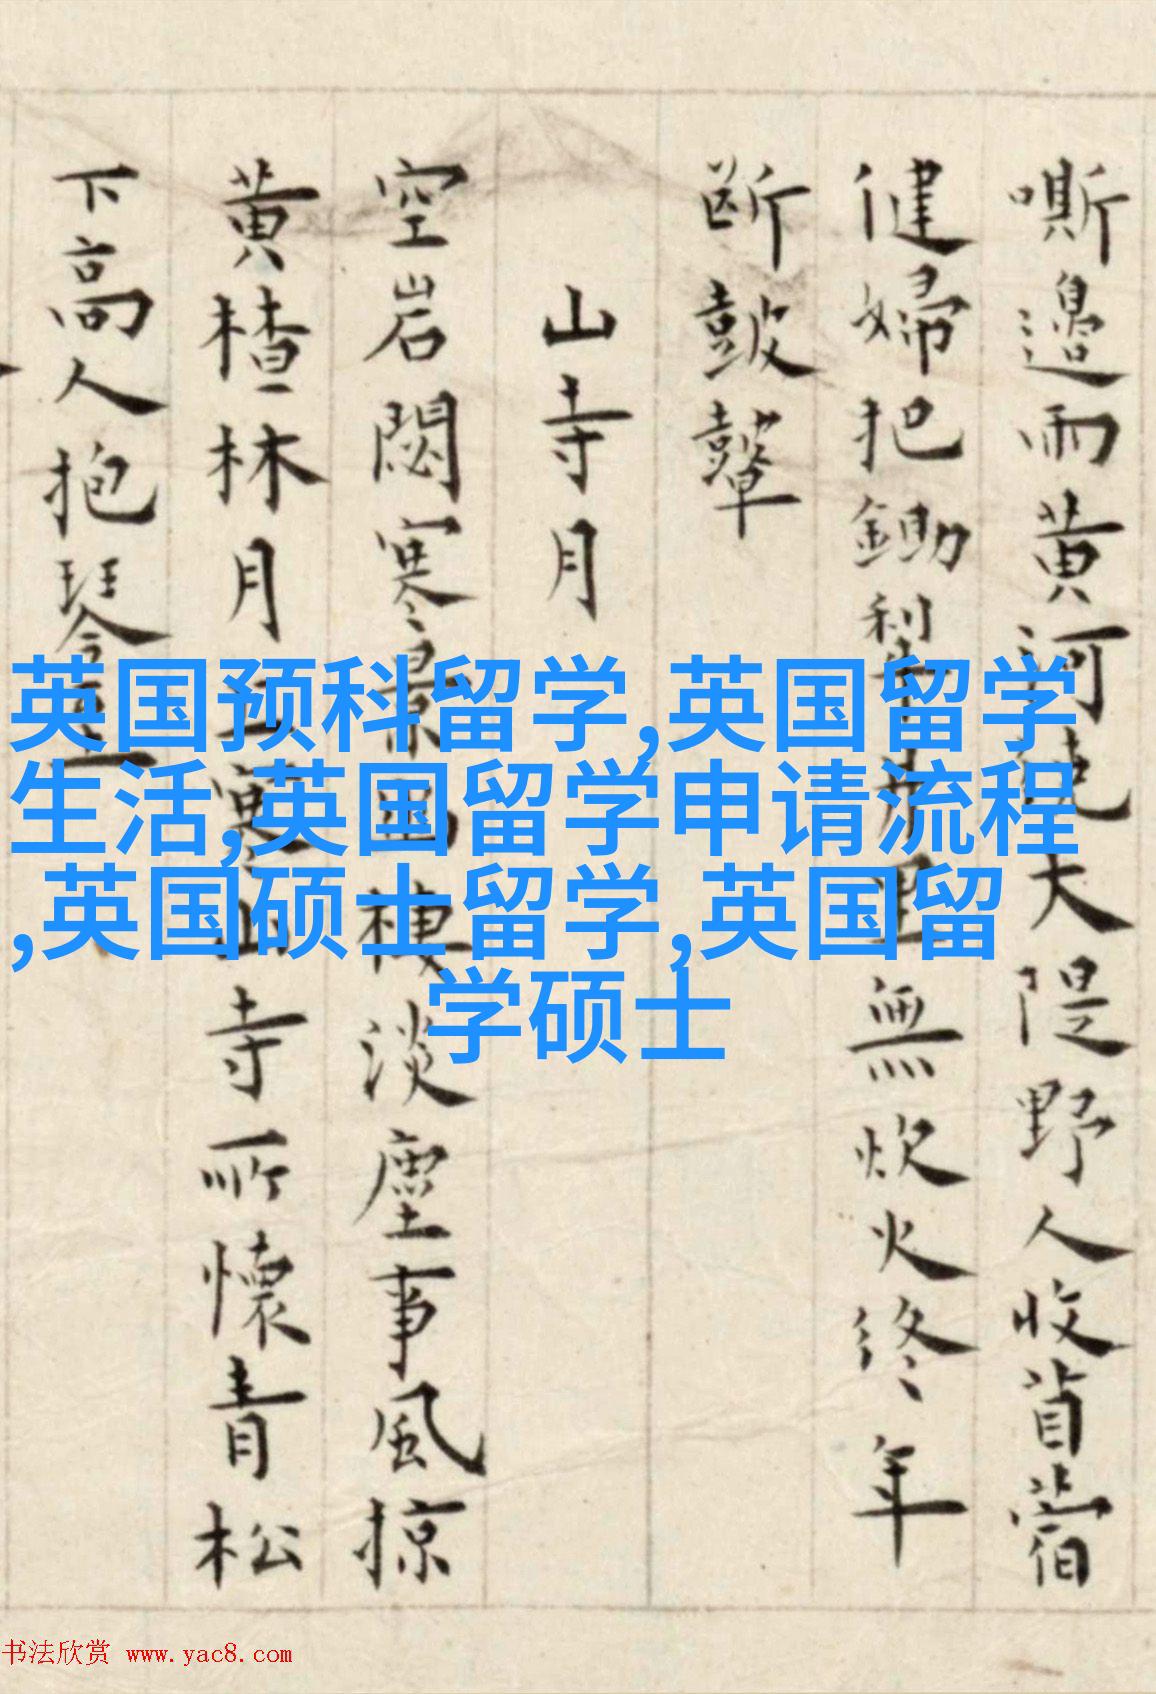 嘶邊雨黄河大隄野人收苜蓿
健婦把鋤犁無炊火終年
断皷鼙
山寺月
空岩閟寒景棲淡塵事風掠
黄楂林月上寒山寺所懷青松
下高人抱琴至
英国预科留学,英国留学
生活,英国留学申请流程
,英国硕士留学,英国留
学硕士
书法欣赏 www.yac8.com